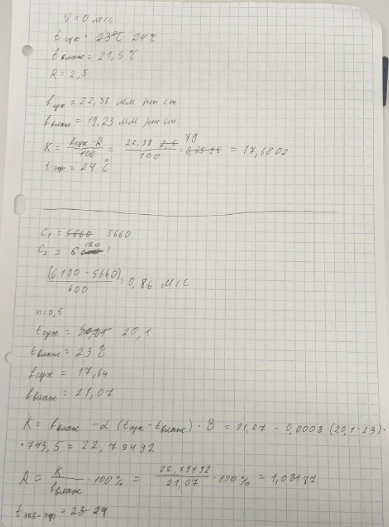 V = 0 м/с
t сух = 23°C 24°C
t влаж = 21,5 °C
R = 2,5
b сух = 22,38 мм рт ст
b влаж = 19,23 мм рт ст
79
K = b сух · R / 100 = 22,38 · 2,5 / 100 = 17,6802
t эф = 24 °C
C₁ = 5660 5660
C₂ = 6180
(6180 - 5660) / 600 = 0,86 м/с
n = 0,5
t сух = 20,1
t влаж = 23 °C
b сух = 17,64
b влаж = 21,07
K = b влаж - α (t сух - t влаж) · B = 21,07 - 0,0008 · (20,1 - 23) ·
· 743,5 = 22,79492
R = K / b влаж · 100 % = 22,79492 / 21,07 · 100 % = 1,08187
t экв-эф = 23-24